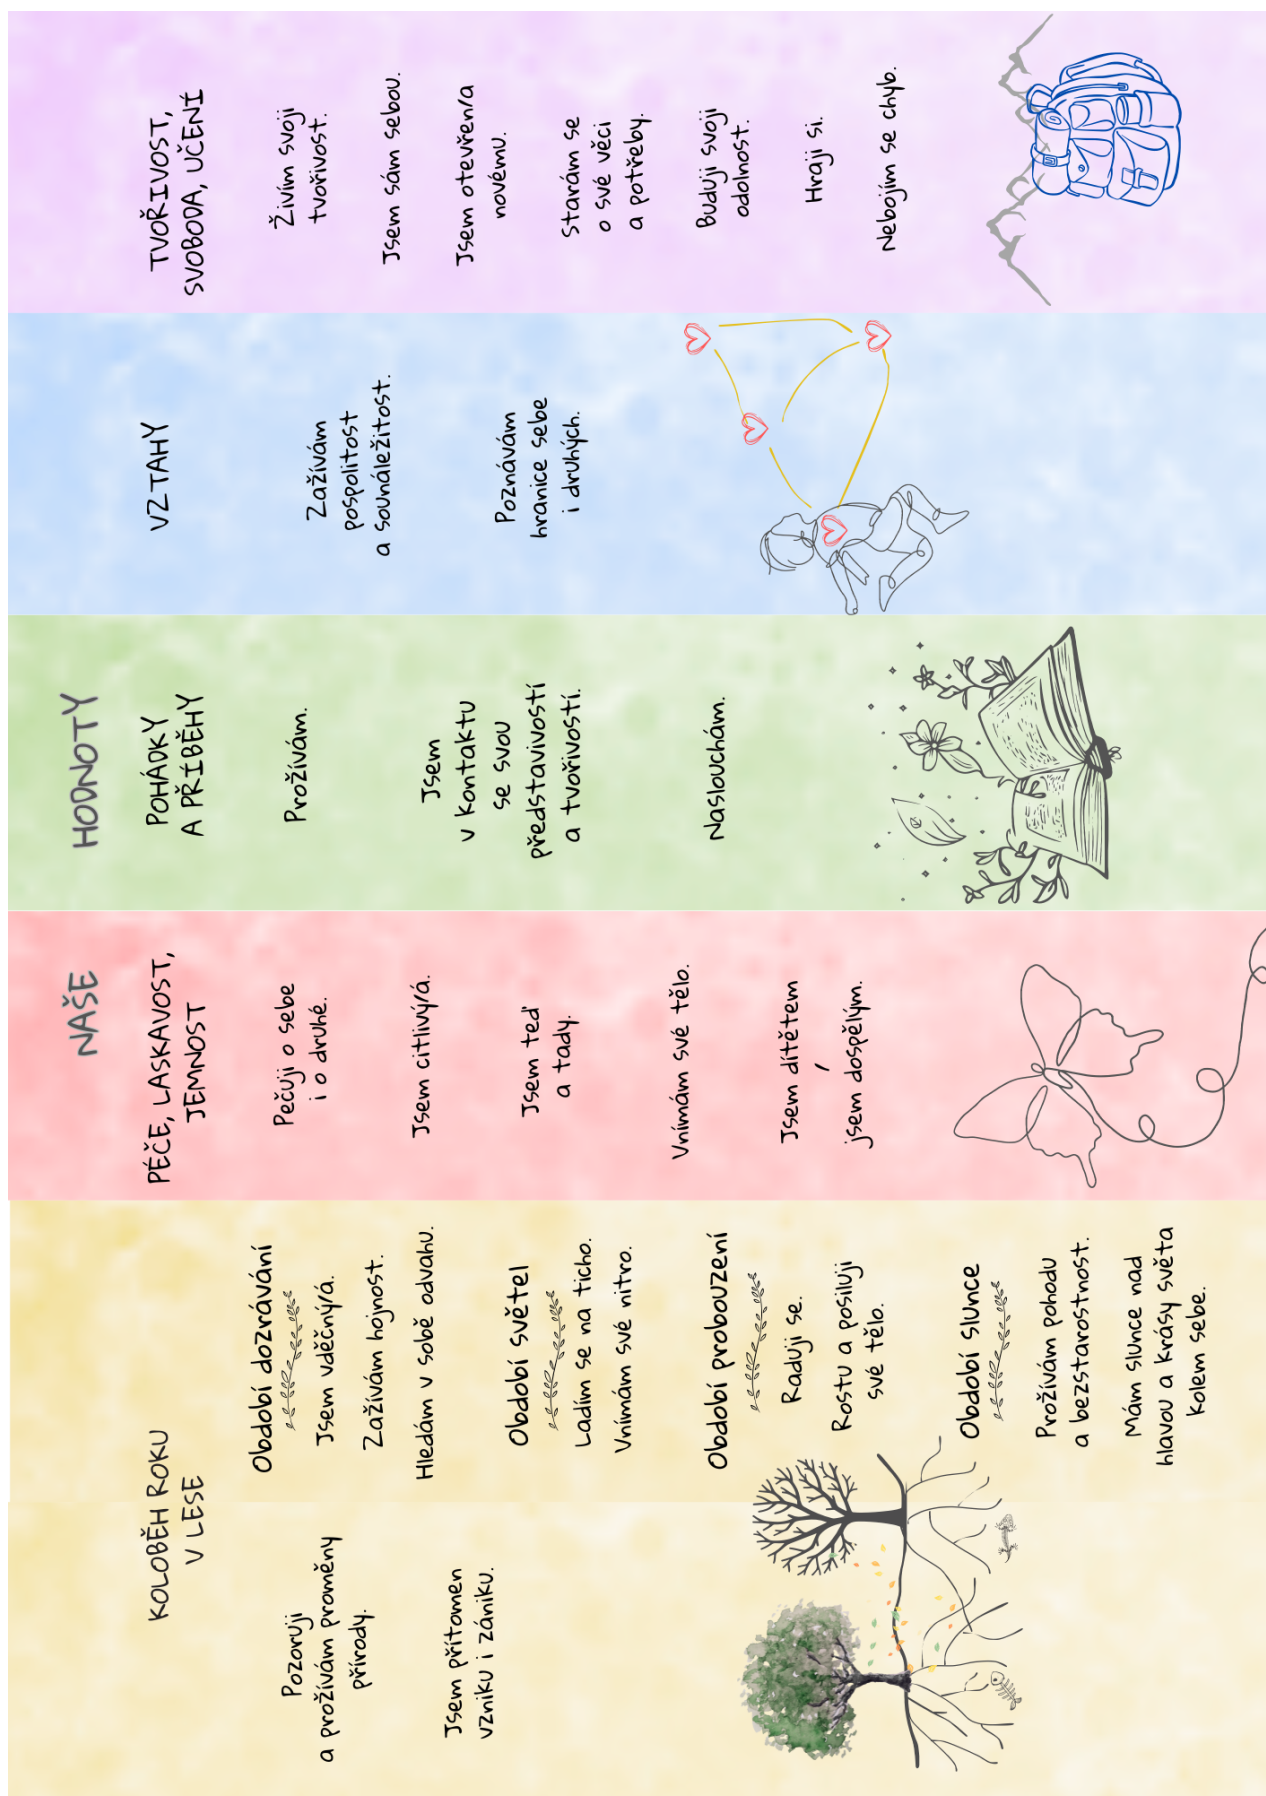 NAŠE HODNOTY
KOLOBĚH ROKU
V LESE
Pozoruji
a prožívám proměny
přírody.
Jsem přítomen
vzniku i zániku.
Období dozrávání
Jsem vděčný/á.
Zažívám hojnost.
Hledám v sobě odvahu.
Období světel
Ladím se na ticho.
Vnímám své nitro.
Období probouzení
Raduji se.
Rostu a posiluji
své tělo.
Období slunce
Prožívám pohodu
a bezstarostnost.
Mám slunce nad
hlavou a krásy světa
kolem sebe.
PÉČE, LASKAVOST,
JEMNOST
Pečuji o sebe
i o druhé.
Jsem citlivý/á.
Jsem teď
a tady.
Vnímám své tělo.
Jsem dítětem
/
jsem dospělým.
POHÁDKY
A PŘÍBĚHY
Prožívám.
Jsem
v kontaktu
se svou
představivostí
a tvořivostí.
Naslouchám.
VZTAHY
Zažívám
pospolitost
a sounáležitost.
Poznávám
hranice sebe
i druhých.
TVOŘIVOST,
SVOBODA, UČENÍ
Živím svoji
tvořivost.
Jsem sám sebou.
Jsem otevřen/a
novému.
Starám se
o své věci
a potřeby.
Buduji svoji
odolnost.
Hraji si.
Nebojím se chyb.